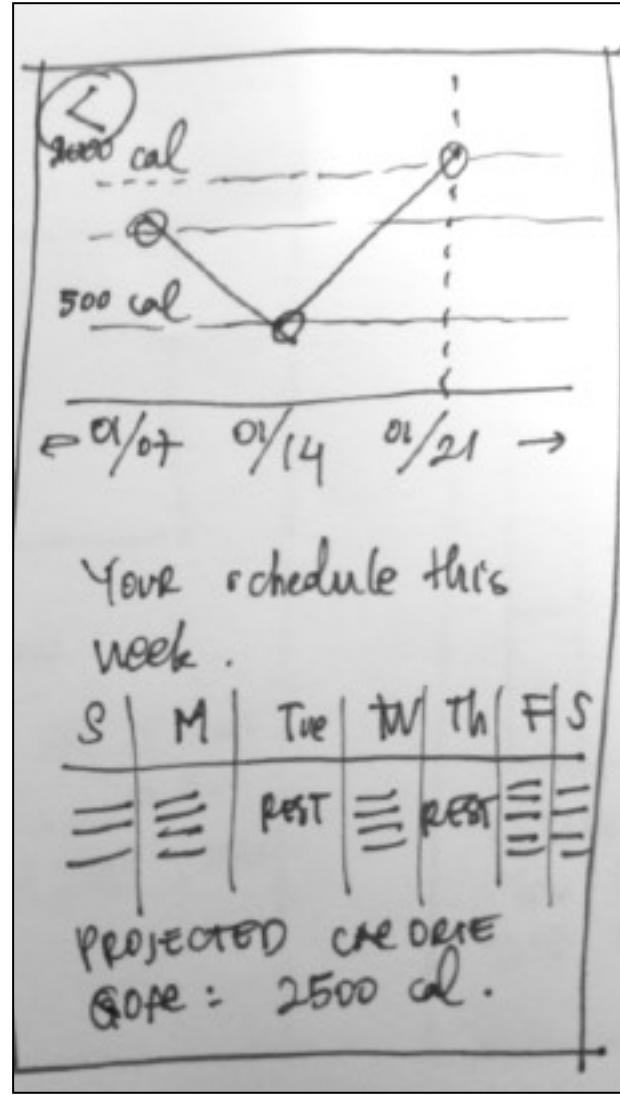 cal
500 cal
01/07 01/14 01/21
Your schedule this
week.
S M Tue W Th F S
REST REST
PROJECTED CALORIE
GOAL: 2500 cal.